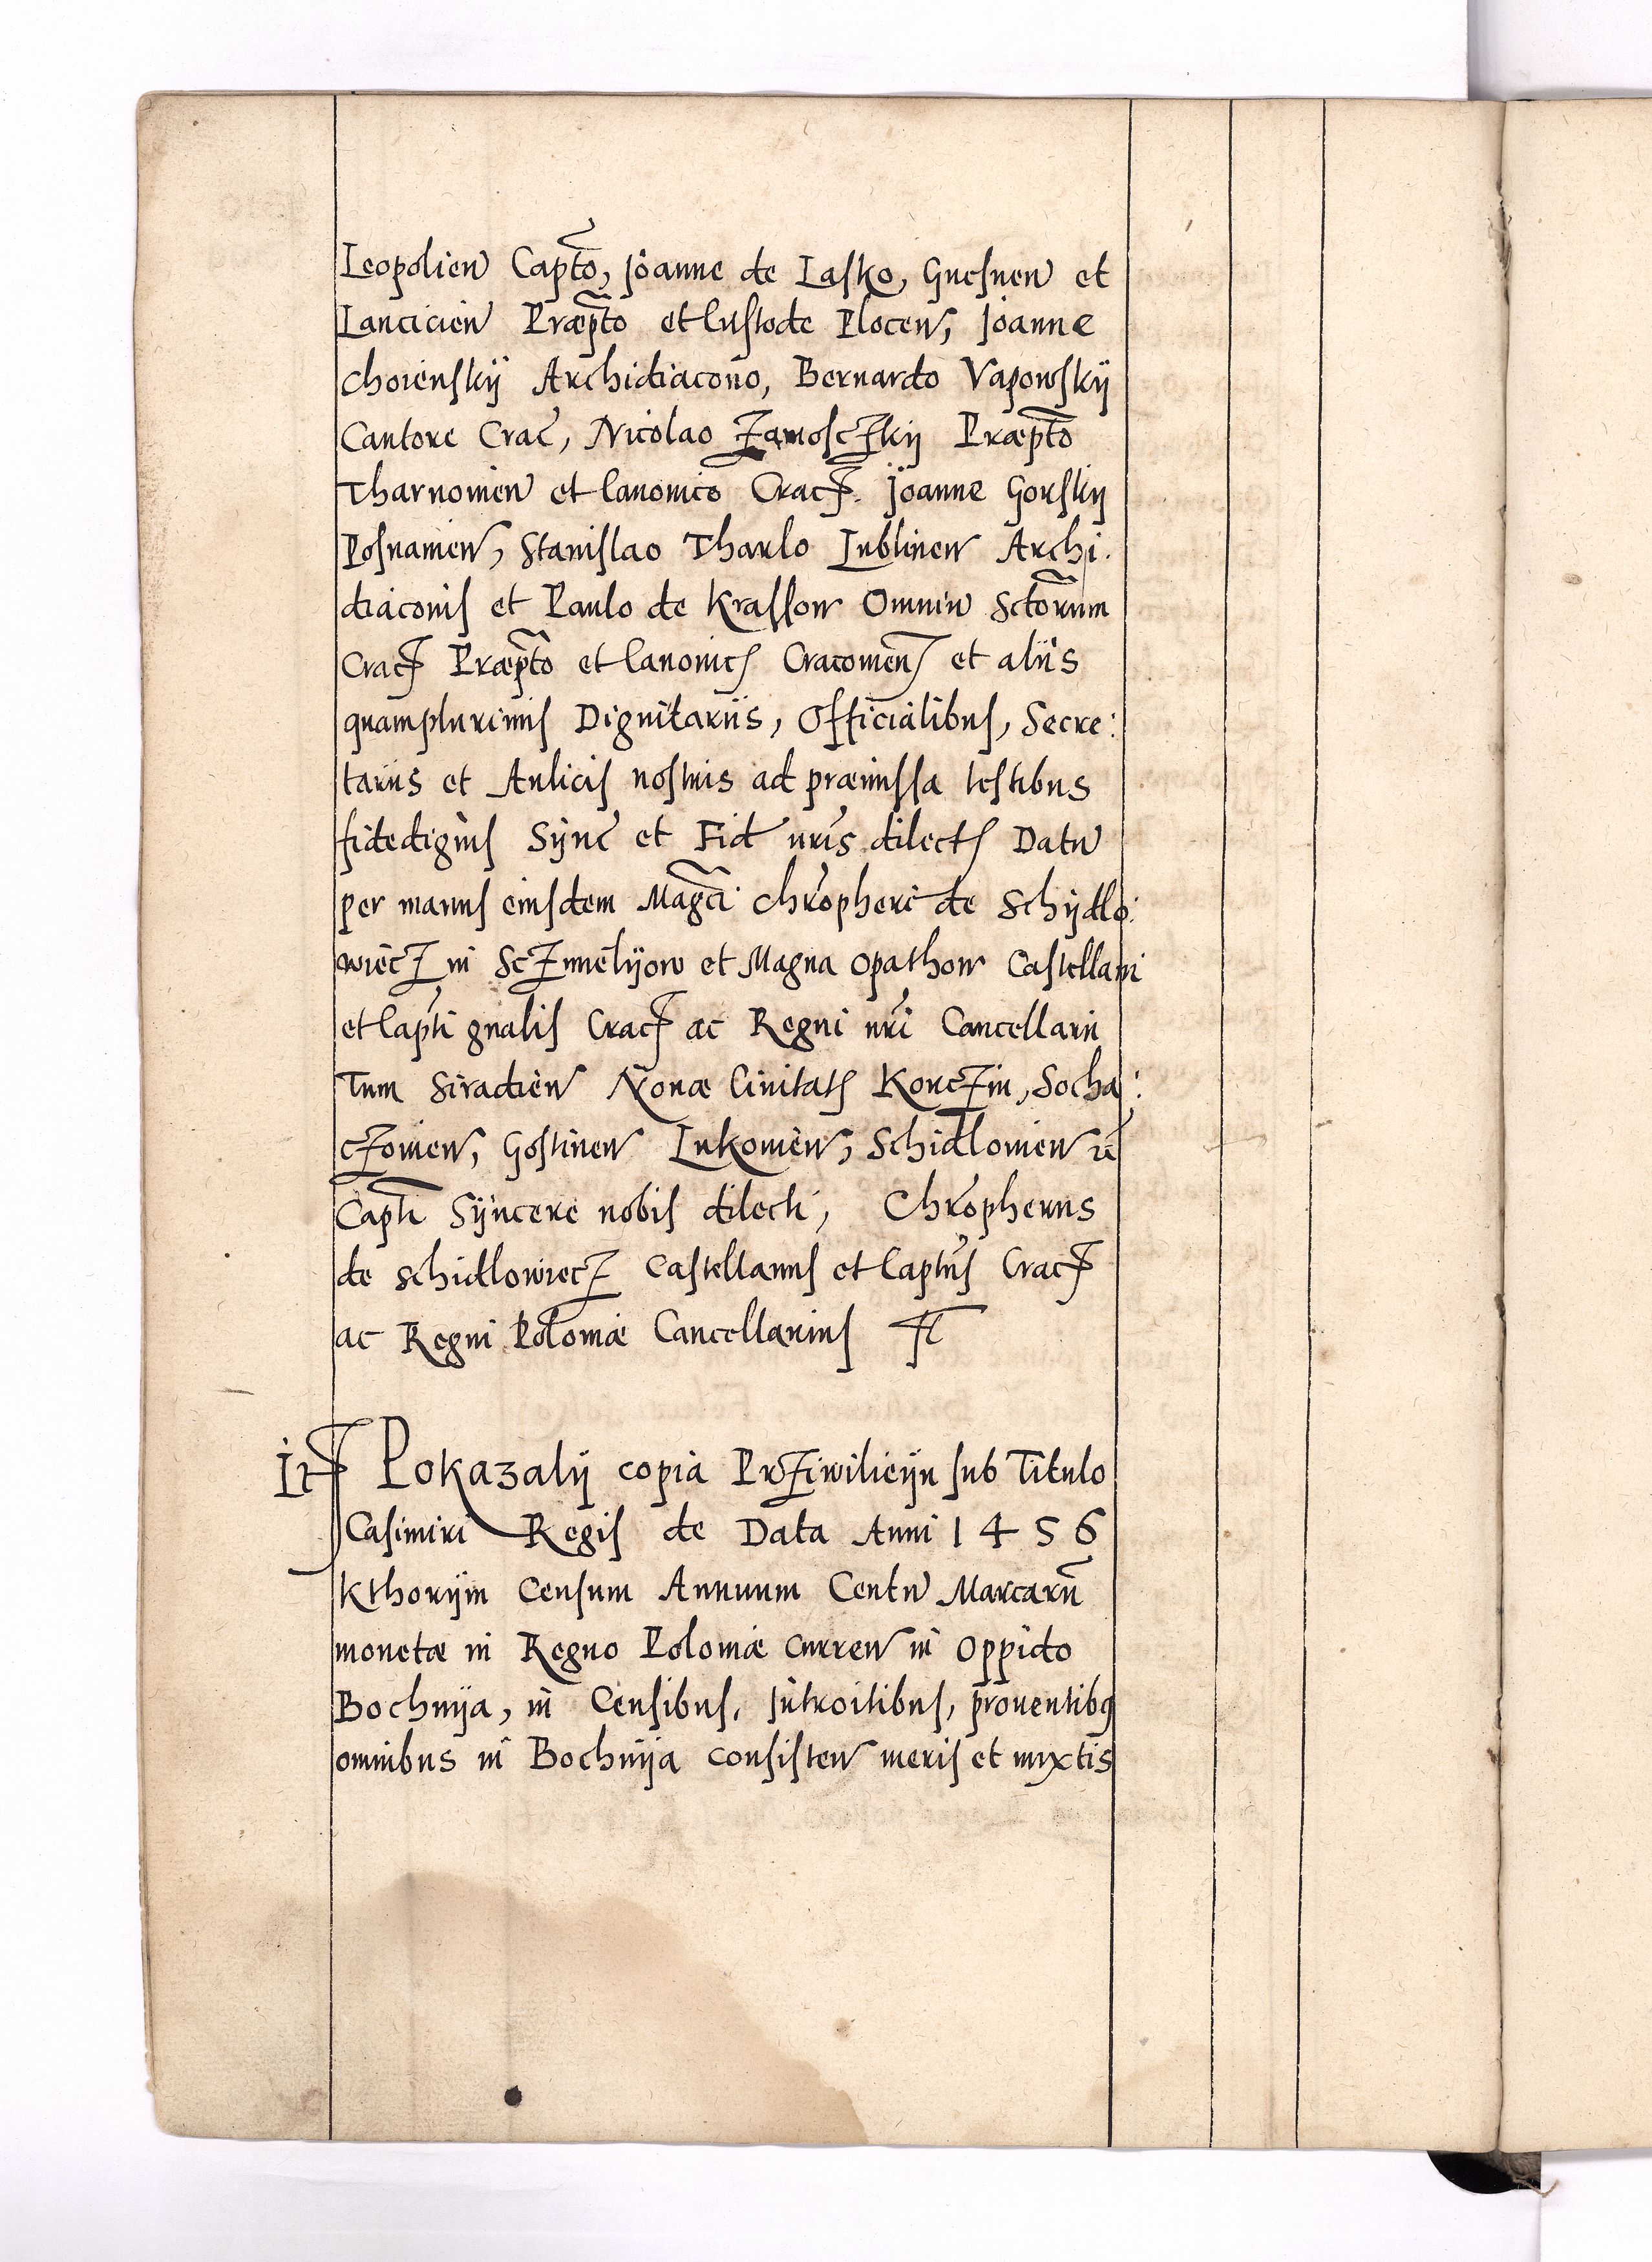 Leopolien Capto, Joanne de Lasko, Gnesnen et
Lancicien Præpto et Custode Plocen, Joanne
Choiensky Archidiacono, Bernardo Vapowsky
Cantore Crac, Nicolao Zamosczky Præpto
Tharnovien et Canonico Crac. Joanne Gorsky
Posnanien, Stanislao Tharlo Lublinen Archi.
diaconis et Paulo de Krassow Omniu Sctorum
Crac Præpto et Canonicis Cracovien et aliis
quamplurimis Dignitariis, Officialibus, Secre:
tariis et Aulicis nostris ad præmissa testibus
fidedignis Sync et Fid nris dilectis Datu
per manus eiusdem Magci Chropheri de Schydlo:
wiecz in Sczmielyow et Magna Opathow Castellani
et Capti gnalis Crac ac Regni nri Cancellarii
Tum Siradien Novæ Civitatis Konczin, Socha:
czovien, Gostinen Lukovien, Schidlovien
Capti Syncere nobis dilecti, Chropherus
de Schidlowiecz Castellanus et Captus Crac
ac Regni Poloniæ Cancellarius
It Pokazaly copia PrzIwilieyu sub Titulo
Casimiri Regis de Data Anni 1456
Kthorym Censum Annuum Centu Marcaru
monetæ in Regno Poloniæ curren in Oppido
Bochnya, in Censibus, Introitibus, proventibq
omnibus in Bochnya consisten meris et mixtis